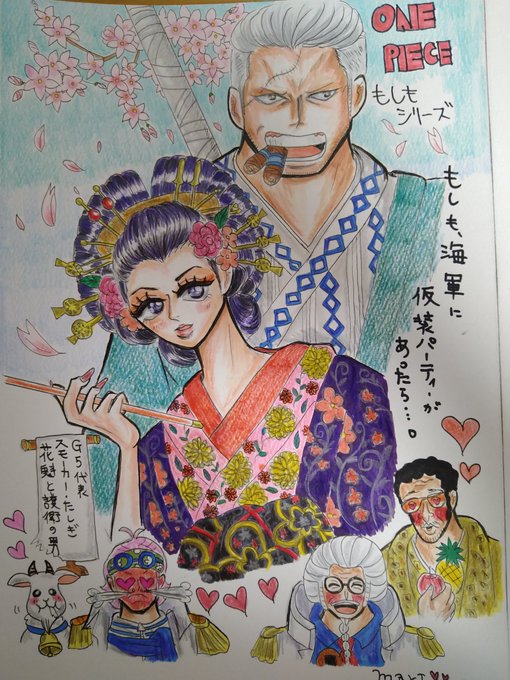 ONE
PIECE
もしも
シリーズ
もしも、海軍に
仮装パーティーが
あったら…。
G5代表
スモーカー・たしぎ
花魁と護衛の男
mari